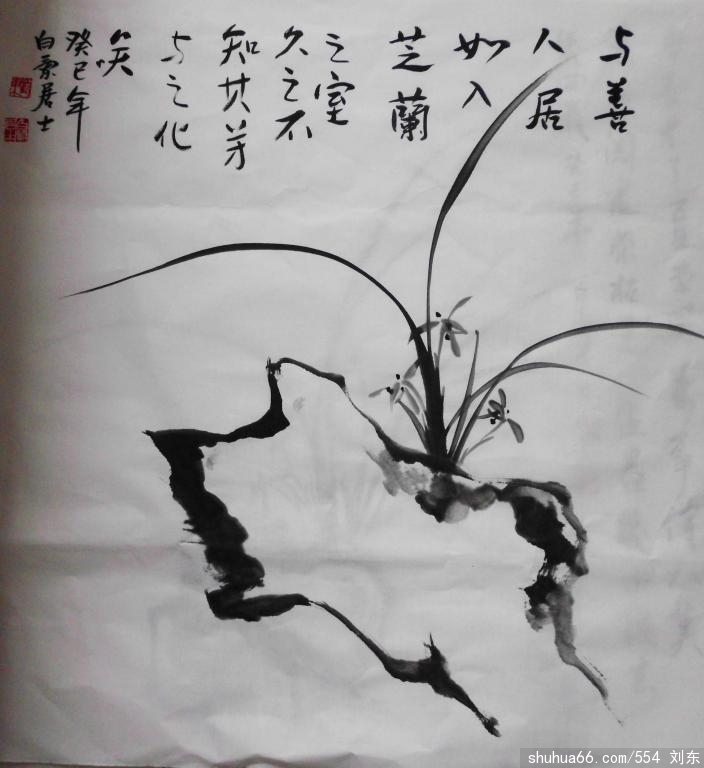 与善
人居
如入
芝蘭
之室
久之不
知其芳
与之化
矣
癸巳年
白雲居士
shuhua66.com/554 刘东